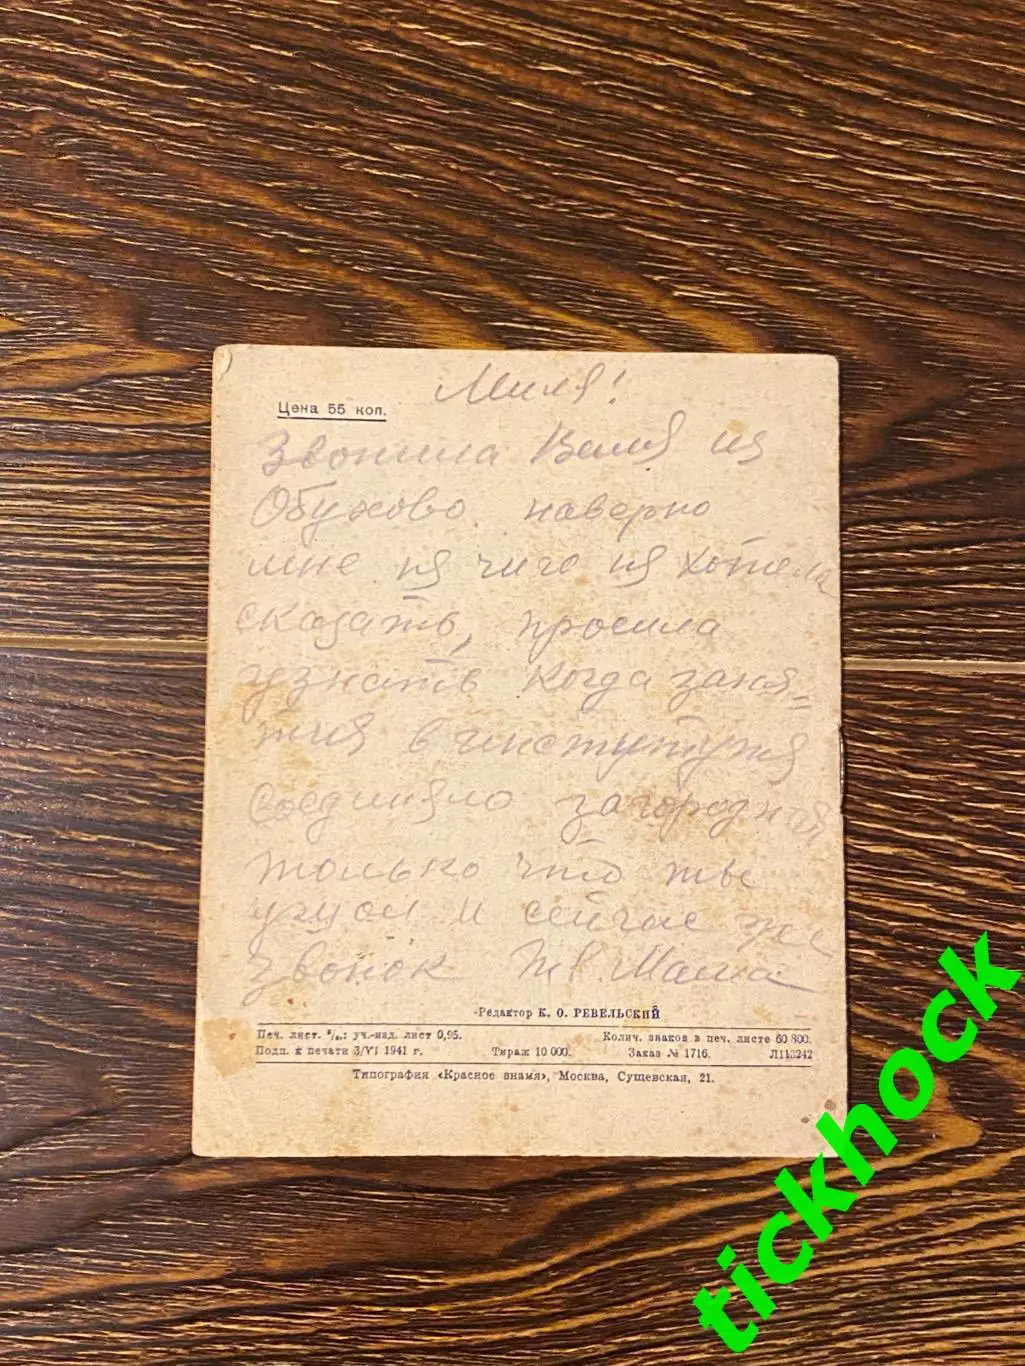 Миля!
Цена 55 коп.
Звонила Валя из
Обухово. наверно
мне ня чиго ня хотела
сказать, просила
узнать когда заня=
тия в институтя
соединяло загородная
только что ты
ушол и сейчас же
звонок тв. Маша
Редактор К. О. РЕВЕЛЬСКИЙ
Печ. лист. уч.-изд. лист 0,95. Колич. знаков в печ. листе 60 800.
Подп. к печати 3/VI 1941 г. Тираж 10 000. Заказ № 1716. Л113242
Типография «Красное знамя», Москва, Сущевская, 21.
tickhock